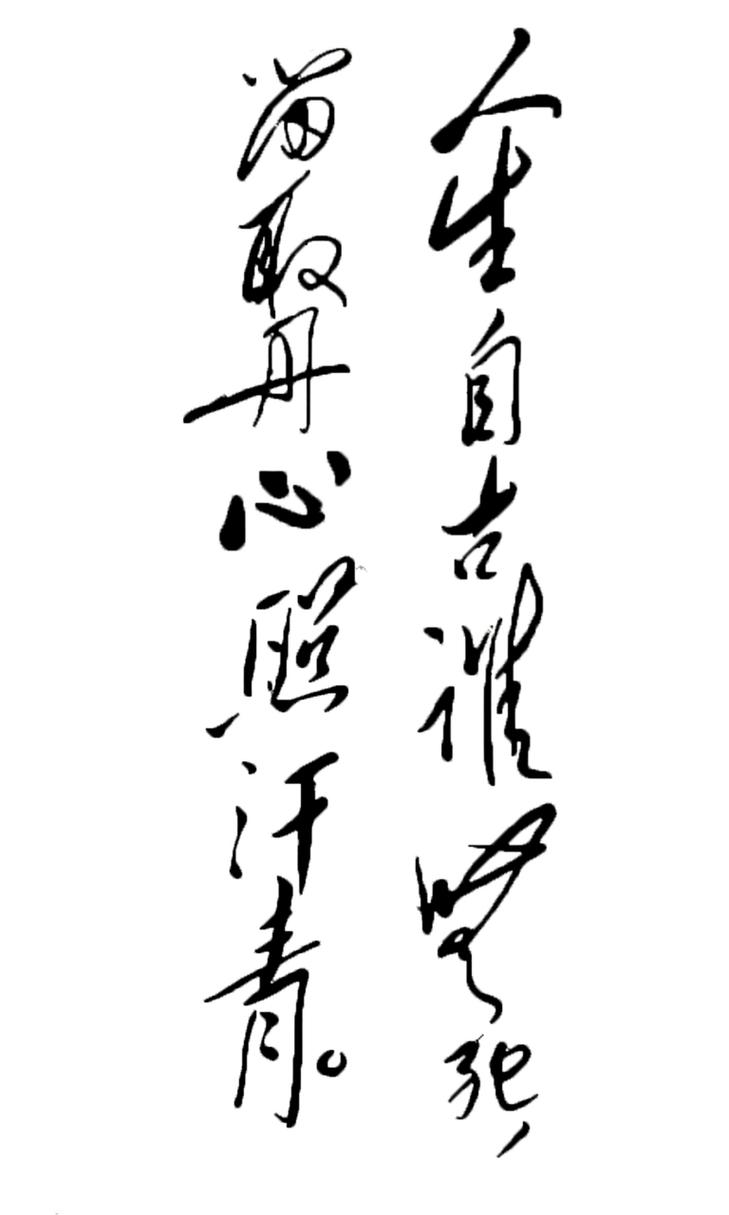 人生自古谁無死，
留取丹心照汗青。